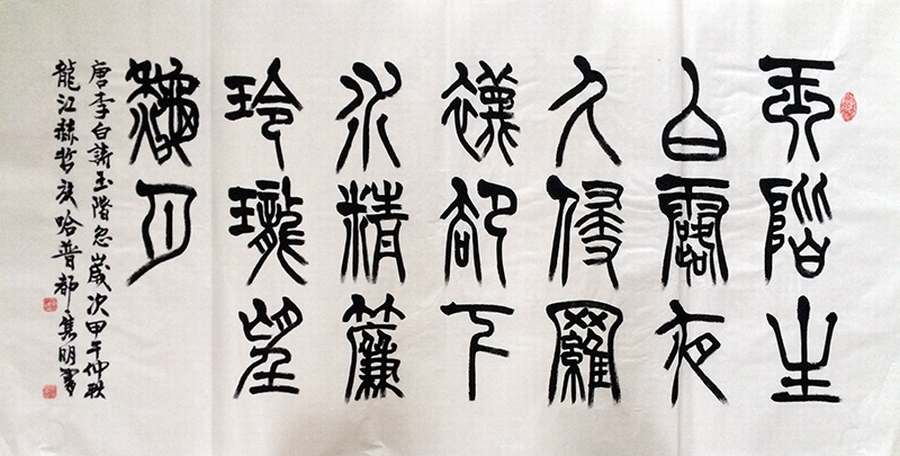 玉階生
白露夜
久侵羅
襪卻下
水精簾
玲瓏望
秋月
唐李白詩玉階怨歲次甲午仲秋
龍江赫哲族哈普都·隽明書